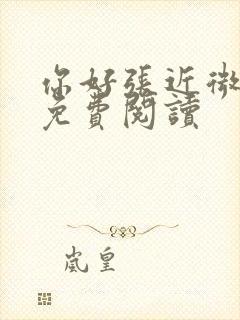 你好張近微
免費閱讀
嵐皇